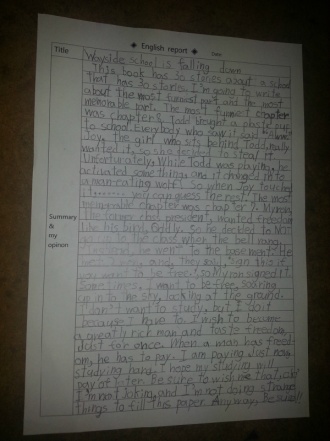 English report
Date:
Title
Wayside school is falling down
This book has 30 stories about a school
that has 30 stories. I'm going to write
about the most funniest part and the most
memorable part. The most funniest chapter
was chapter 8. Todd brought a
to school. Everybody who saw it said
Joy, the girl who sits behind Todd, really
wanted it, so she tried to steal it.
Unfortunately, While Todd was playing, he
activated something and it changed into
a man-eating wolf! So when Joy touched
it........ you can guess the rest. The most
memorable chapter was chapter Myron,
the former class president, wanted freedom
like his bird, Oddly. So he decided to NOT
go up to the class when the bell rang.
Instead, he went to the basement. He
met men, and they said, "Sign this if
you want to be free." So Myron signed it.
Sometimes, I want to be free, soaring
up in the sky, looking at the ground.
I don't want to study, but I do it
because I have to. I wish to become
a great rich man and taste freedom,
Just for once. When a man has freed-
om, he has to pay. I am paying just now,
studying hard. I hope my studying will
pay after. Be sure to wish me luck, ok?
I'm not joking, and I'm not doing strange
things to fill this paper. Anyway, be sure!!
Summary
&
my
opinion